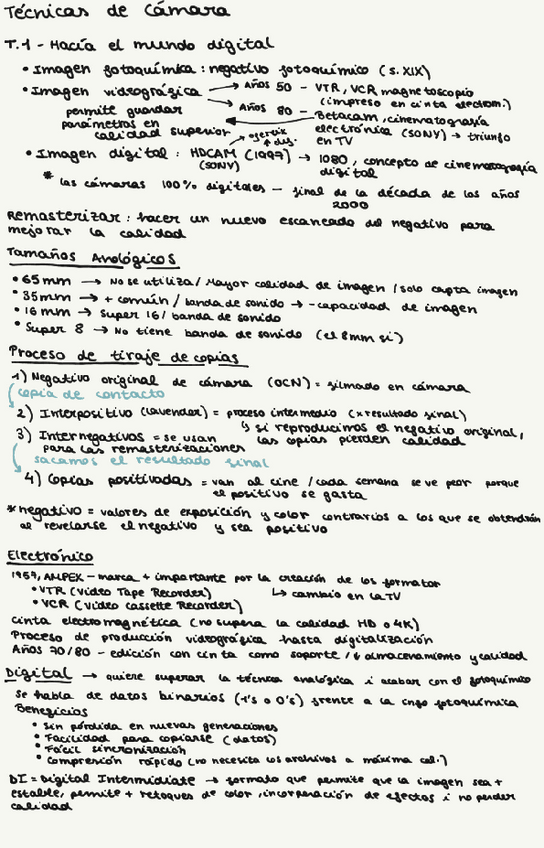 Técnicas de Cámara
T.1 - Hacía el mundo digital
• Imagen fotoquímica : negativo fotoquímico (s. XIX)
• Imagen videográfica → Años 50 - VTR, VCR magnetoscopio
(impreso en cinta electrom.)
permite guardar parámetros en calidad superior
→ Años 80 - Betacam, cinematografía
electrónica (SONY) → triunfo
en TV
• Imagen digital : HDCAM (1997) → 1080, concepto de cinematografía
(SONY) digital
* las cámaras 100% digitales - final de la década de los años
2000
Remasterizar : hacer un nuevo escaneado del negativo para
mejorar la calidad
Tamaños Analógicos
• 65mm → No se utiliza / Mayor calidad de imagen / solo capta imagen
• 35mm → + común / banda de sonido → - capacidad de imagen
• 16mm → Super 16 / banda de sonido
• Super 8 → No tiene banda de sonido (el 8mm sí)
Proceso de tiraje de copias
1) Negativo original de cámara (OCN) = filmado en cámara
copia de contacto
2) Interpositivo (lavender) = proceso intermedio (x resultado final)
y si reproducimos el negativo original,
las copias pierden calidad
3) Internegativos = se usan
para las remasterizaciones
sacamos el resultado final
4) Copias positivadas = van al cine / cada semana se ve peor porque
el positivo se gasta
* negativo = valores de exposición y color contrarios a los que se obtendrán
al revelarse el negativo y sea positivo
Electrónico
1957, AMPEX - marca + importante por la creación de los formatos
• VTR (Video Tape Recorder) ↳ cambio en la TV
• VCR (Video cassette Recorder)
cinta electromagnética (no supera la calidad HD o 4K)
Proceso de producción videográfica hasta digitalización
Años 70/80 - edición con cinta como soporte / ↓ almacenamiento y calidad
Digital → quiere superar la técnica analógica i acabar con el fotoquímico
se habla de datos binarios (1's o 0's) frente a la info fotoquímica
Beneficios
• Sin pérdida en nuevas generaciones
• Facilidad para copiarse (datos)
• Fácil sincronización
• Comprensión rápido (no necesita los archivos a máxima cal.)
DI = Digital Intermidiate → formato que permite que la imagen sea +
estable, permite + retoques de color, incorporación de efectos i no perder
calidad